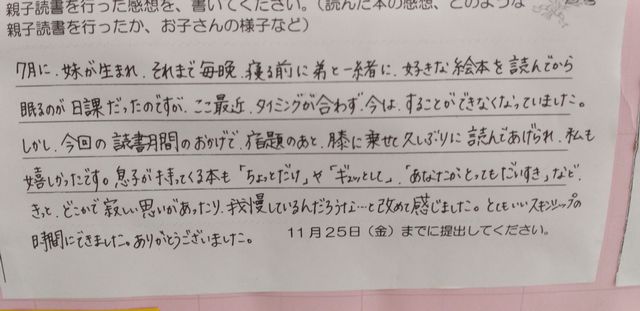 親子読書を行った感想を、書いてください。（読んだ本の感想、どのような
親子読書を行ったか、お子さんの様子など）
7月に、妹が生まれ、それまで毎晩、寝る前に弟と一緒に、好きな絵本を読んでから
眠るのが日課だったのですが、ここ最近、タイミングが合わず、今は、することができなくなっていました。
しかし、今回の読書月間のおかげで、宿題のあと、膝に乗せて久しぶりに読んであげられ、私も
嬉しかったです。息子が持ってくる本も「ちょっとだけ」や「ギュッとして」、「あなたがとってもだいすき」など、
きっと、どこかで寂しい思いがあったり、我慢しているんだろうな…と改めて感じました。とてもいいスキンシップの
時間にできました。ありがとうございました。 11月25日（金）までに提出してください。